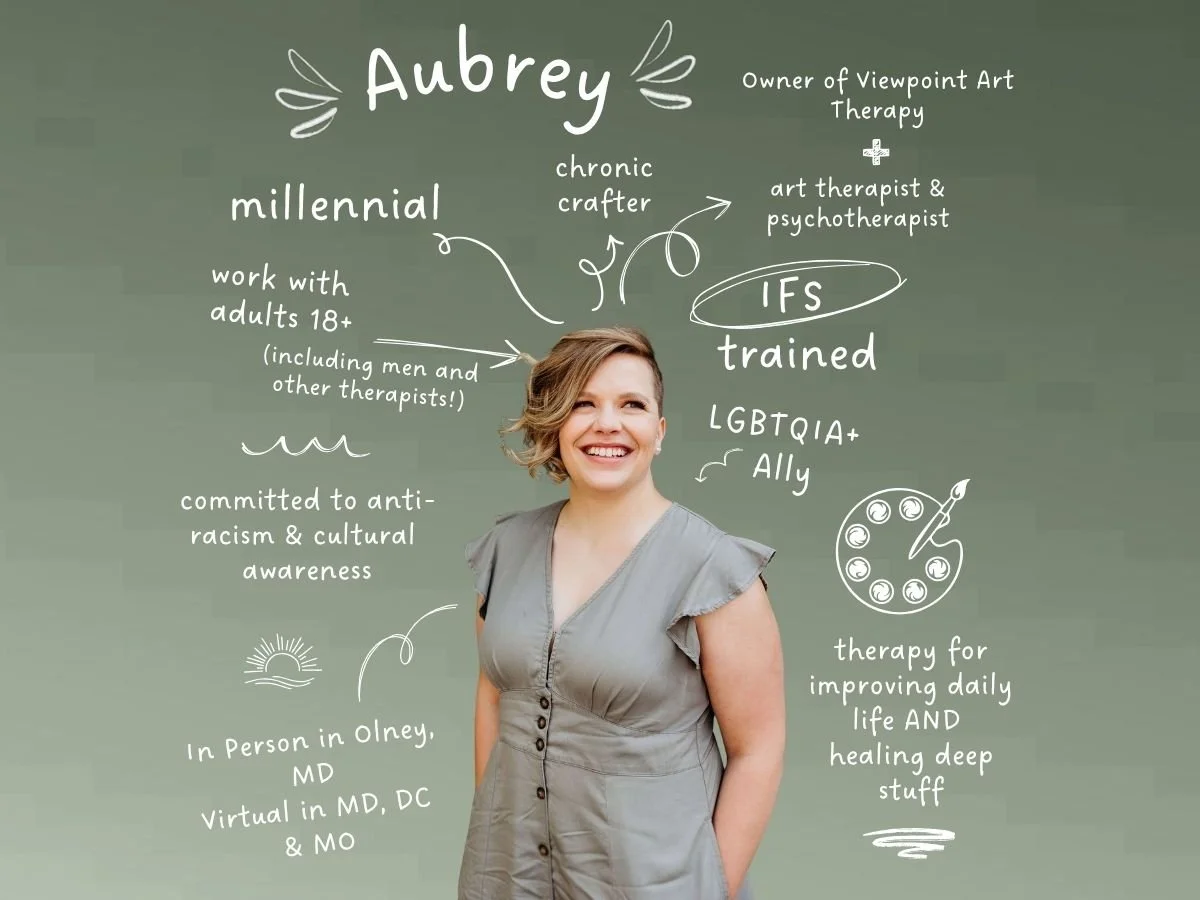 Aubrey
Owner of Viewpoint Art
Therapy
+
art therapist &
psychotherapist
chronic
crafter
millennial
work with
adults 18+
(including men and
other therapists!)
IFS
trained
LGBTQIA+
Ally
committed to anti-
racism & cultural
awareness
In Person in Olney,
MD
Virtual in MD, DC
& MO
therapy for
improving daily
life AND
healing deep
stuff